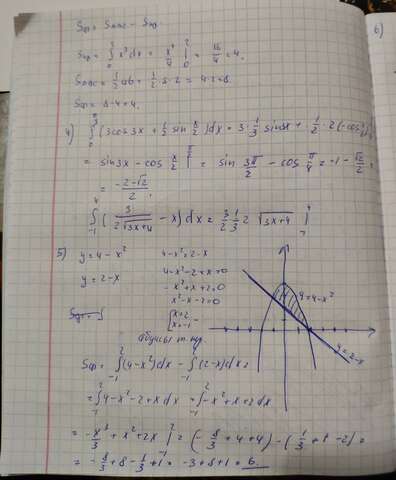 Sф = Sпос - Sкр
6)
Sкр = ∫₀² x³dx = x⁴/4 |₀² = 16/4 = 4.
Sпос = 1/2 ab = 1/2 · 8 · 2 = 4·2 = 8
Sф = 8 - 4 = 4.
4) ∫ (3cos3x + 1/2 sin x/2)dx = 3 · 1/3 sin3x + 1/2 · 2(-cos x/2)
= sin3x - cos x/2 | = sin 3π/2 - cos π/4 = -1 - √2/2 =
= -2-√2/2 ,
∫₋₁⁴ ( 3/2√3x+4 - x)dx = 3/2 · 1/3 · 2 √3x+4 |⁴
5) y = 4 - x² 4 - x² = 2 - x
y = 2 - x 4 - x² - 2 + x = 0
- x² + x + 2 = 0
x² - x - 2 = 0
x = 2
x = -1
y = 4 - x²
y = 2 - x
Sф = ∫₋₁² (4-x²)dx - ∫₋₁² (2-x)dx =
= ∫₋₁² 4 - x² - 2 + x dx = ∫₋₁² -x² + x + 2 dx
= - x³/3 + x² + 2x |₋₁² = (- 8/3 + 4 + 4) - (1/3 + 1 - 2) =
= - 8/3 + 8 - 1/3 + 1 = -3 + 8 + 1 = 6.